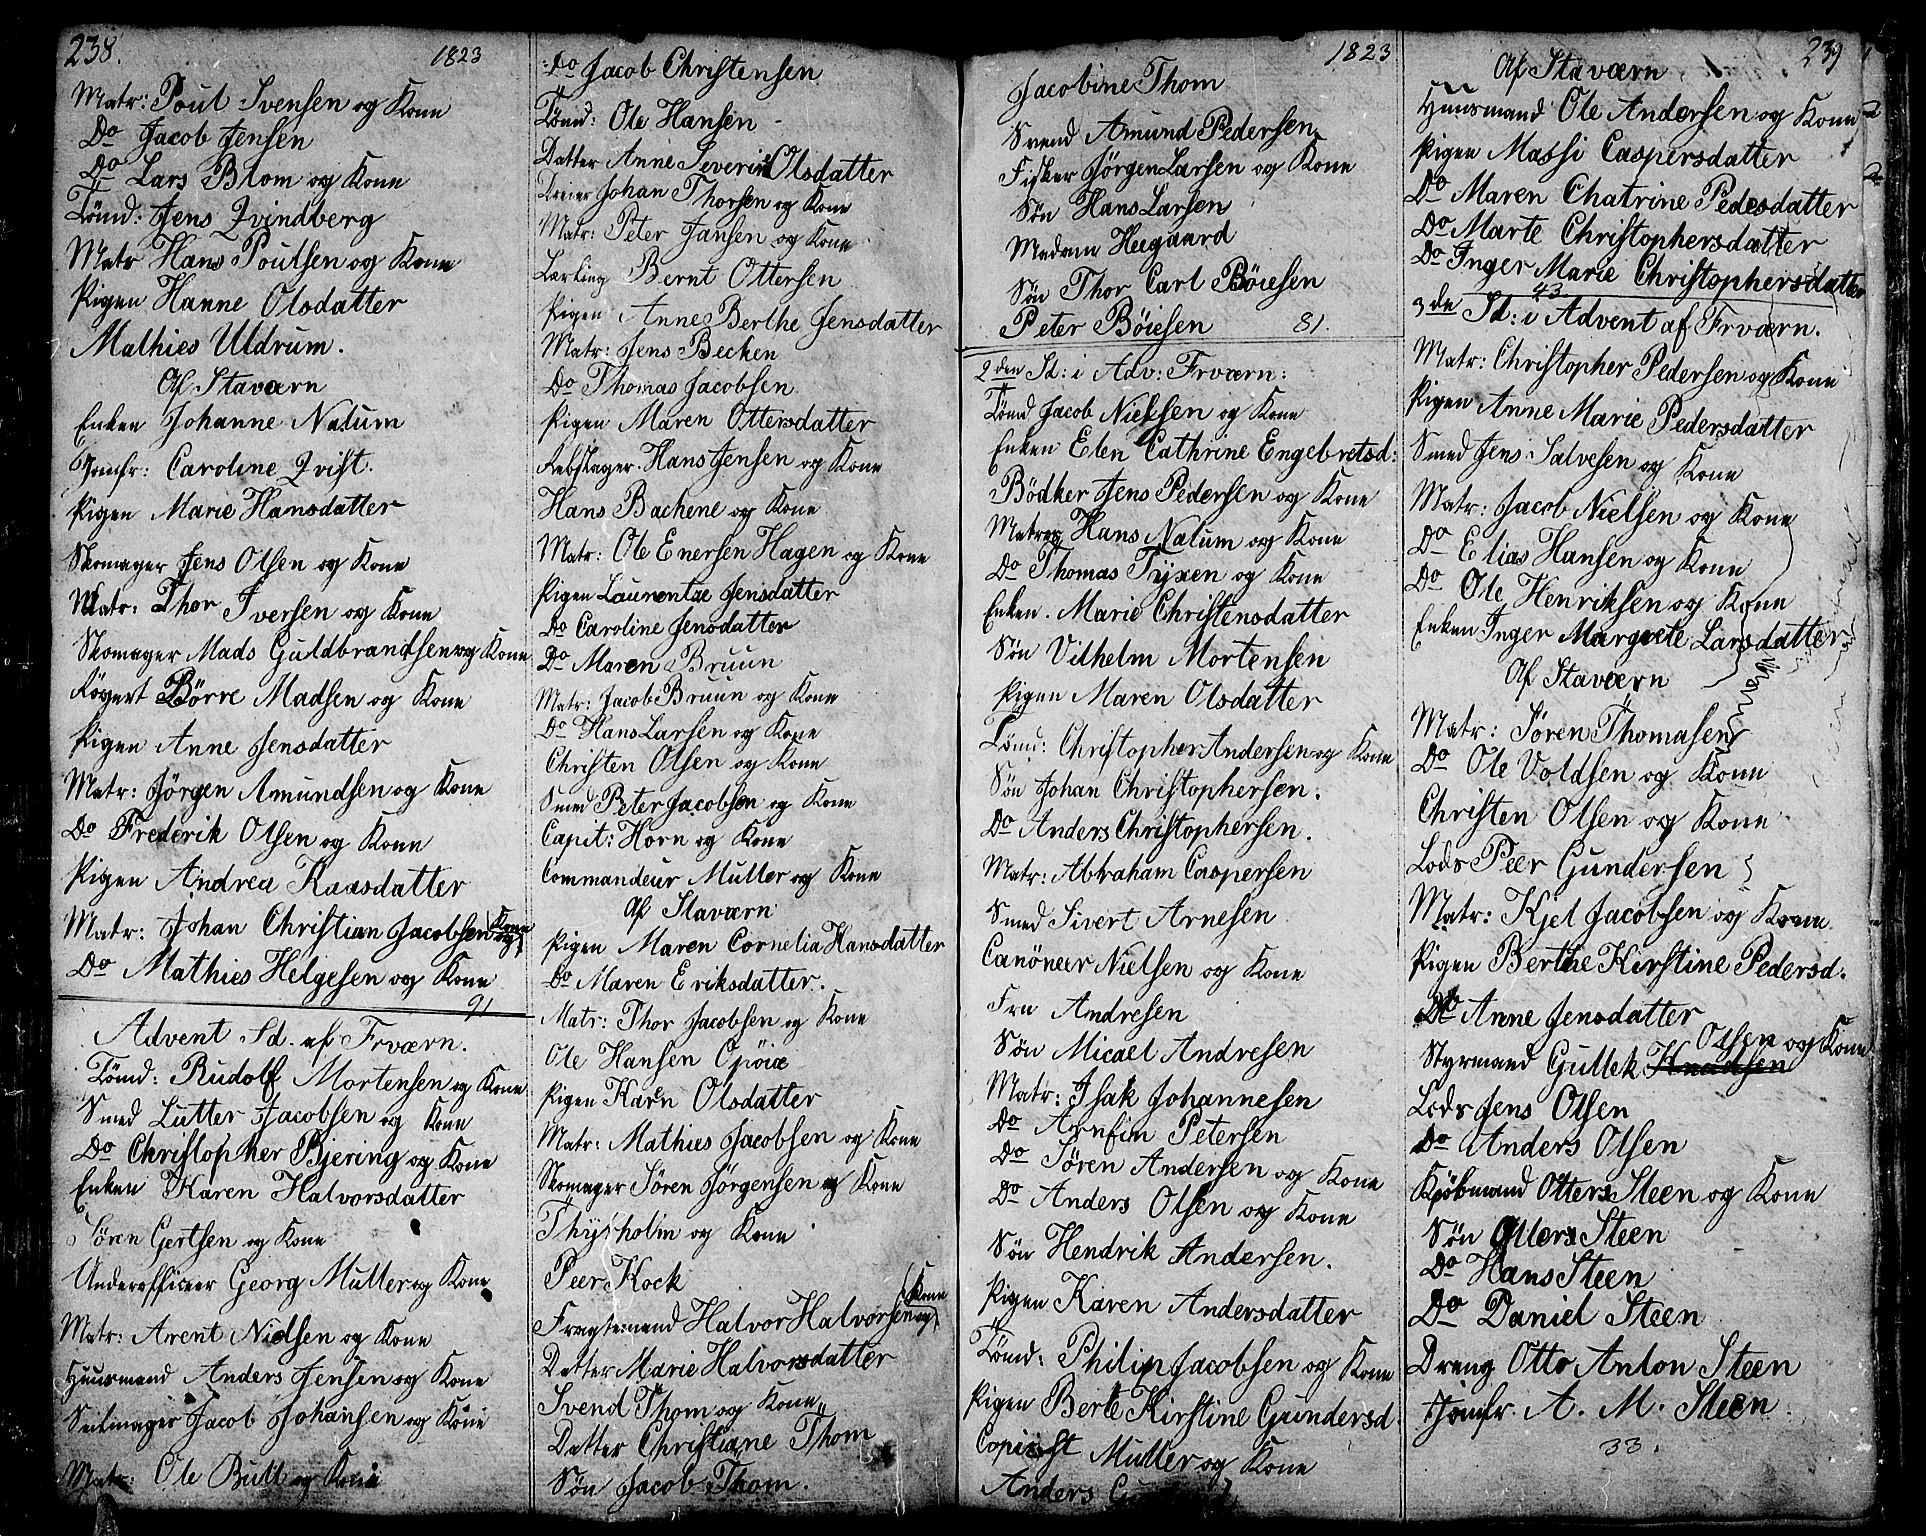 238. 1823
Matr: Poul Svensen og Kone
Do Jacob Jensen
Do Lars Blom og Kone
Tömd: Jens Qvindberg
Matr Hans Poulsen og Kone
Pigen Hanne Olsdatter
Mathies Uldrum.
Af Staværn
Enken Johanne Nalum
Jomfr: Caroline Qvist.
Pigen Marie Hansdatter
Skomager Jens Olsen og Kone
Matr: Thor Iversen og Kone
Skomager Mads Guldbrandsen og Kone
Rögert Börre Madsen og Kone
Pigen Anne Jensdatter
Matr: Jörgen Amundsen og Kone
Do Frederik Olsen og Kone
Pigen Andrea Kaasdatter
Matr: Johan Christian Jacobsen og Kone
Do Mathies Helgesen og Kone
91
Advent Sd. af Frværn.
Tömd: Rudolf Mortensen og Kone
Smed Lutter Jacobsen og Kone
Do Christopher Bjering og Kone
Enken Karen Halvorsdatter
Sören Gertsen og Kone
Underofficeer Georg Muller og Kone
Matr: Arent Nielsen og Kone
Huusmand Anders Jensen og Kone
Seilmager Jacob Johansen og Kone
Matr: Ole Bull og Kone
Do Jacob Christensen
Tömd: Ole Hansen
Datter Anne Severine Olsdatter
Dreier Johan Thorsen og Kone
Matr: Peter Jansen og Kone
Lærling Bernt Ottersen
Pigen Anne Berthe Jensdatter
Matr: Jens Becken
Do Thomas Jacobsen
Pigen Maren Ottersdatter
Rebslager Hans Jensen og Kone
Hans Bachene og Kone
Matr: Ole Enersen Hagen og Kone
Pigen Laurentze Jensdatter
Do Caroline Jensdatter
Do Maren Bruun
Matr: Jacob Bruun og Kone
Do Hans Larsen og Kone
Christen Olsen og Kone
Smed Peter Jacobsen og Kone
Capit: Horn og Kone
Commandeur Muller og Kone
Af Staværn
Pigen Maren Cornelia Hansdatter
Do Maren Eriksdatter.
Matr: Thor Jacobsen og Kone
Ole Hansen Opöiæ
Pigen Karen Olsdatter
Matr: Mathies Jacobsen og Kone
Skomager Sören Jörgensen og Kone
Thysholm og Kone
Peer Kock
Fragtemand Halvor Halvorsen og Kone
Datter Marie Halvorsdatter
Svend Thom og Kone
Datter Christiane Thom
Sön Jacob Thom.
1823
Jacobine Thom
Svend Amund Pedersen
Fisker Jörgen Larsen og Kone
Sön Hans Larsen
Madame Heegaard
Sön Thor Carl Böiesen
Peter Böiesen 81.
2den Sd: i Adv: Frværn:
Tömd Jacob Nielsen og Kone
Enken Elen Cathrine Engebretsd:
Bödker Jens Pedersen og Kone
Matros Hans Nalum og Kone
Do Thomas Tyxen og Kone
Enken. Marie Christensdatter
Sön Vilhelm Mortensen
Pigen Maren Olsdatter
Tömd: Christopher Andersen og Kone
Sön Johan Christophersen.
Do Anders Christophersen.
Matr: Abraham Caspersen
Smed Sivert Arnesen
Canöneer Nielsen og Kone
Fru Andresen
Sön Micael Andresen
Matr: Isak Johannesen
Do Arnfin Petersen
Do Sören Andersen og Kone
Do Anders Olsen og Kone
Sön Hendrik Andersen.
Pigen Karen Andersdatter
Tömd: Philip Jacobsen og Kone
Pigen Berte Kirstine Gundersd.
Copiist Muller og Kone
Anders
239
Af Staværn
Huusmand Ole Andersen og Kone
Pigen Massi Caspersdatter
Do Maren Chatrine Pedesdatter
Do Marte Christophersdatter
Do Inger Marie Christophersdatter
43
3de Sd: i Advent af Frværn.
Matr: Christopher Pedersen og Kone
Pigen Anne Marie Pedersdatter
Smed Jens Salvesen og Kone
Matr: Jacob Nielsen og Kone
Do Elias Hansen og Kone
Do Ole Henriksen og Kone
Enken Inger Margrete Larsdatter
Af Staværn
Matr: Sören Thomasen
Do Ole Voldsen og Kone
Christen Olsen og Kone
Lods Peer Gundersen
Matr: Kjel Jacobsen og Kone
Pigen Berthe Kirstine Pedersd.
Do Anne Jensdatter
Styrmand Gullek Knudsen Olsen og Kone
Lods Jens Olsen
Do Anders Olsen
Kjöbmand Otters Steen og Kone
Sön Otters Steen
Do Hans Steen
Do Daniel Steen
Dreng Otto Anton Steen
Jomfr. A. M. Steen.
33.